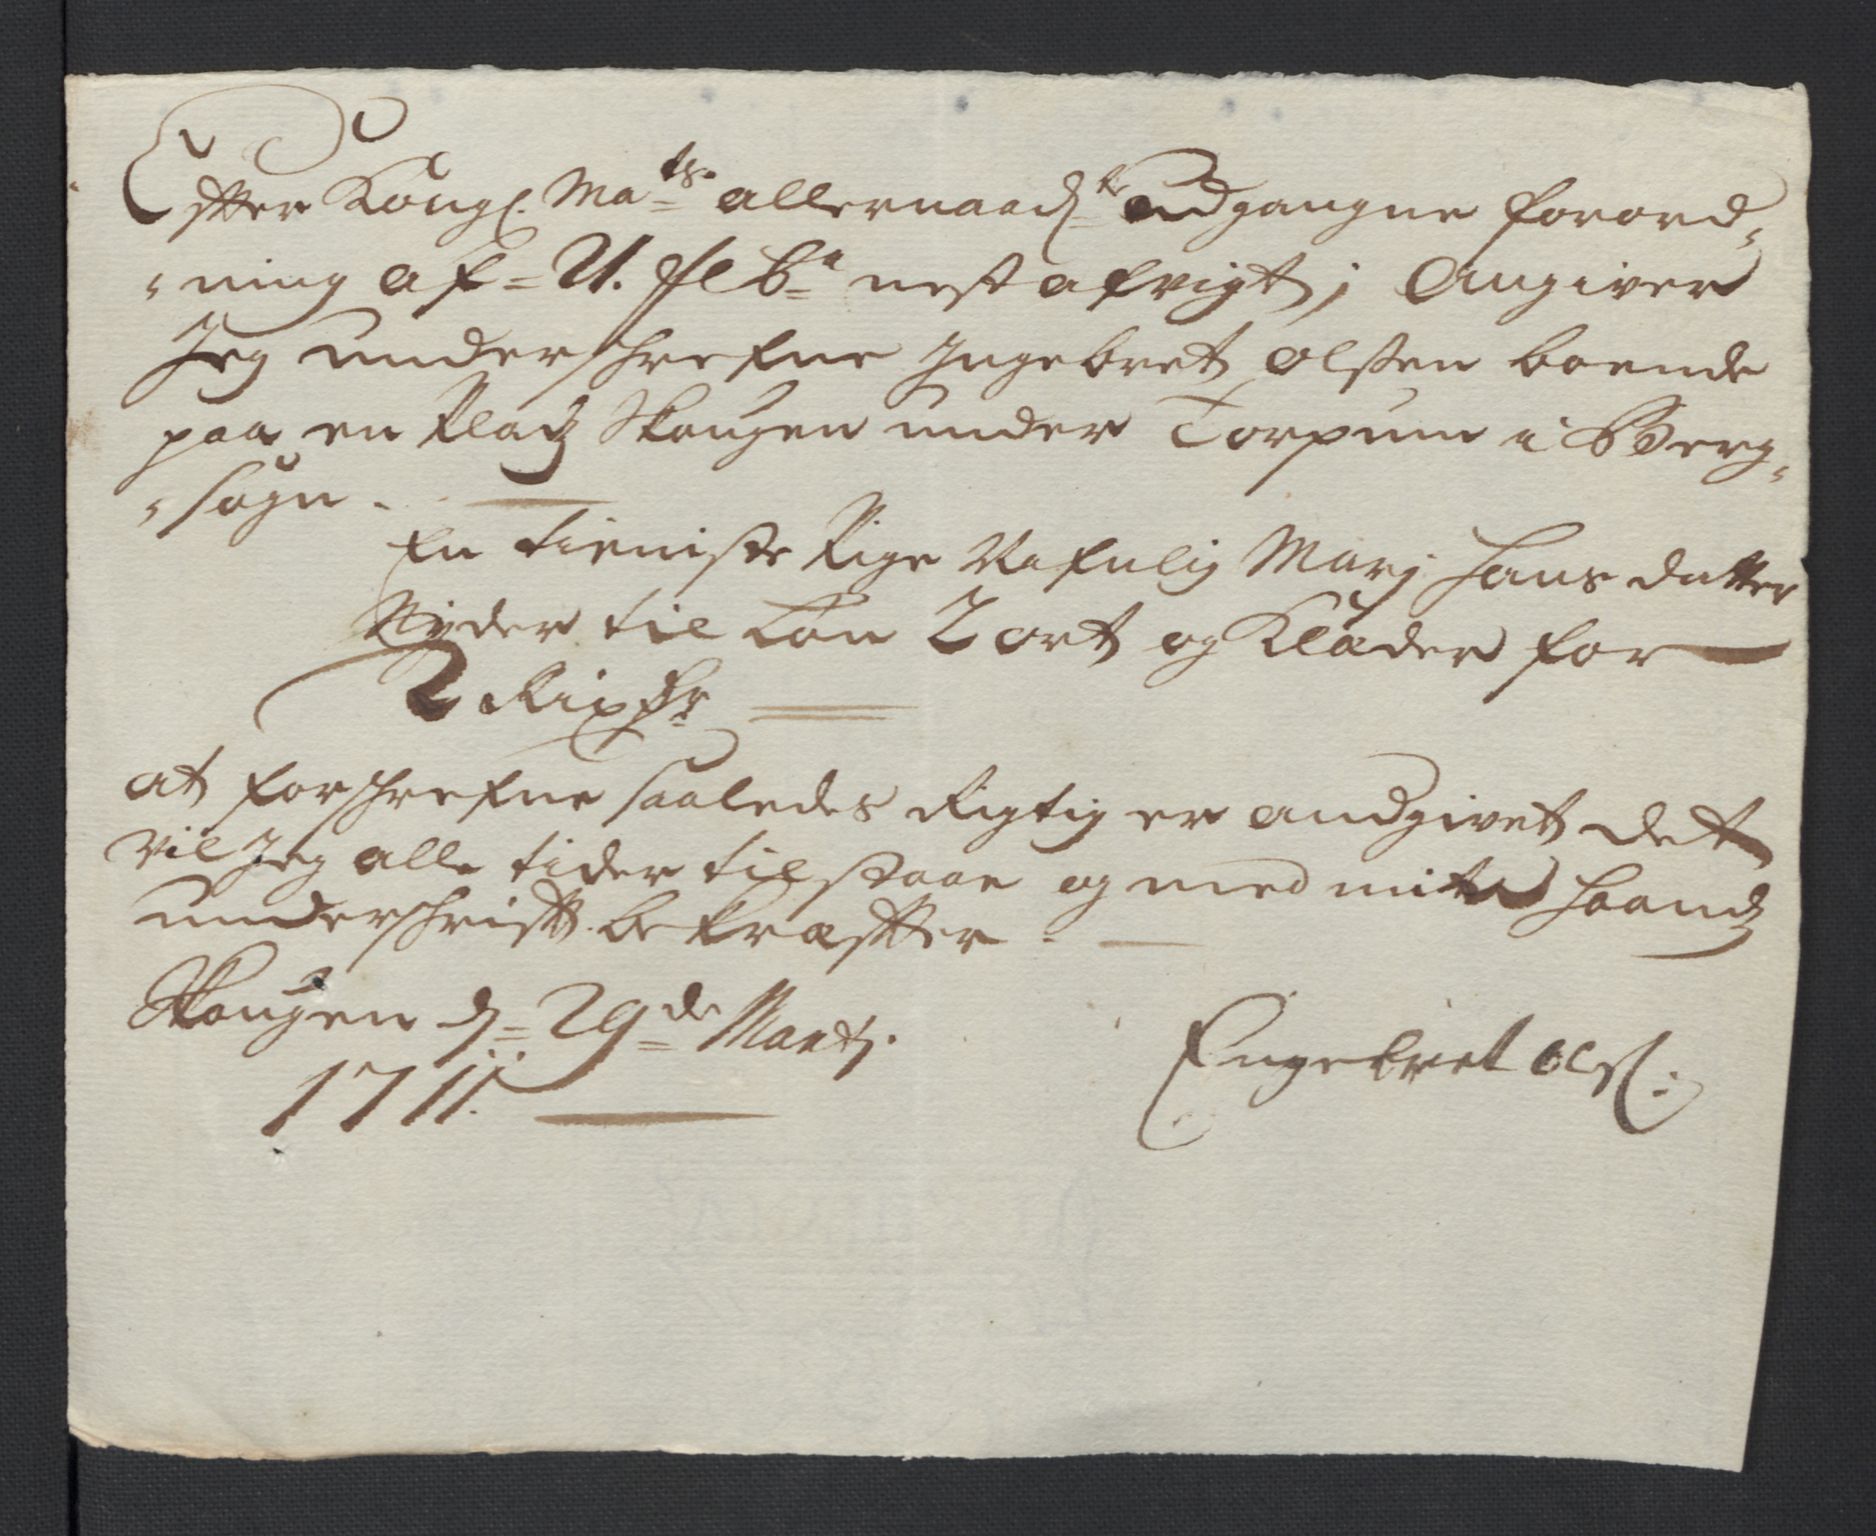 Effter Kongl. Mats. allernaadste udgangne forord-
-ning af 21. Feb. nest afvigt, Angiver
Jeg underschrefne Jngebret olsen boende
paa en Pladz Skougen under Torpum i Berg-
-sogn.
En tieniste Pige Nafnlig Marj Hans datter
Nyder til Løn 2 ort og Klæder for
2 Rixdr
at forschrefne saaledes Rigtig er andgivet det
vil Jeg alle tider tilstaae og med mit Haandz
underschrifft bekræffter.
Skougen d. 29de Martj.
1711.
Engebret olss: